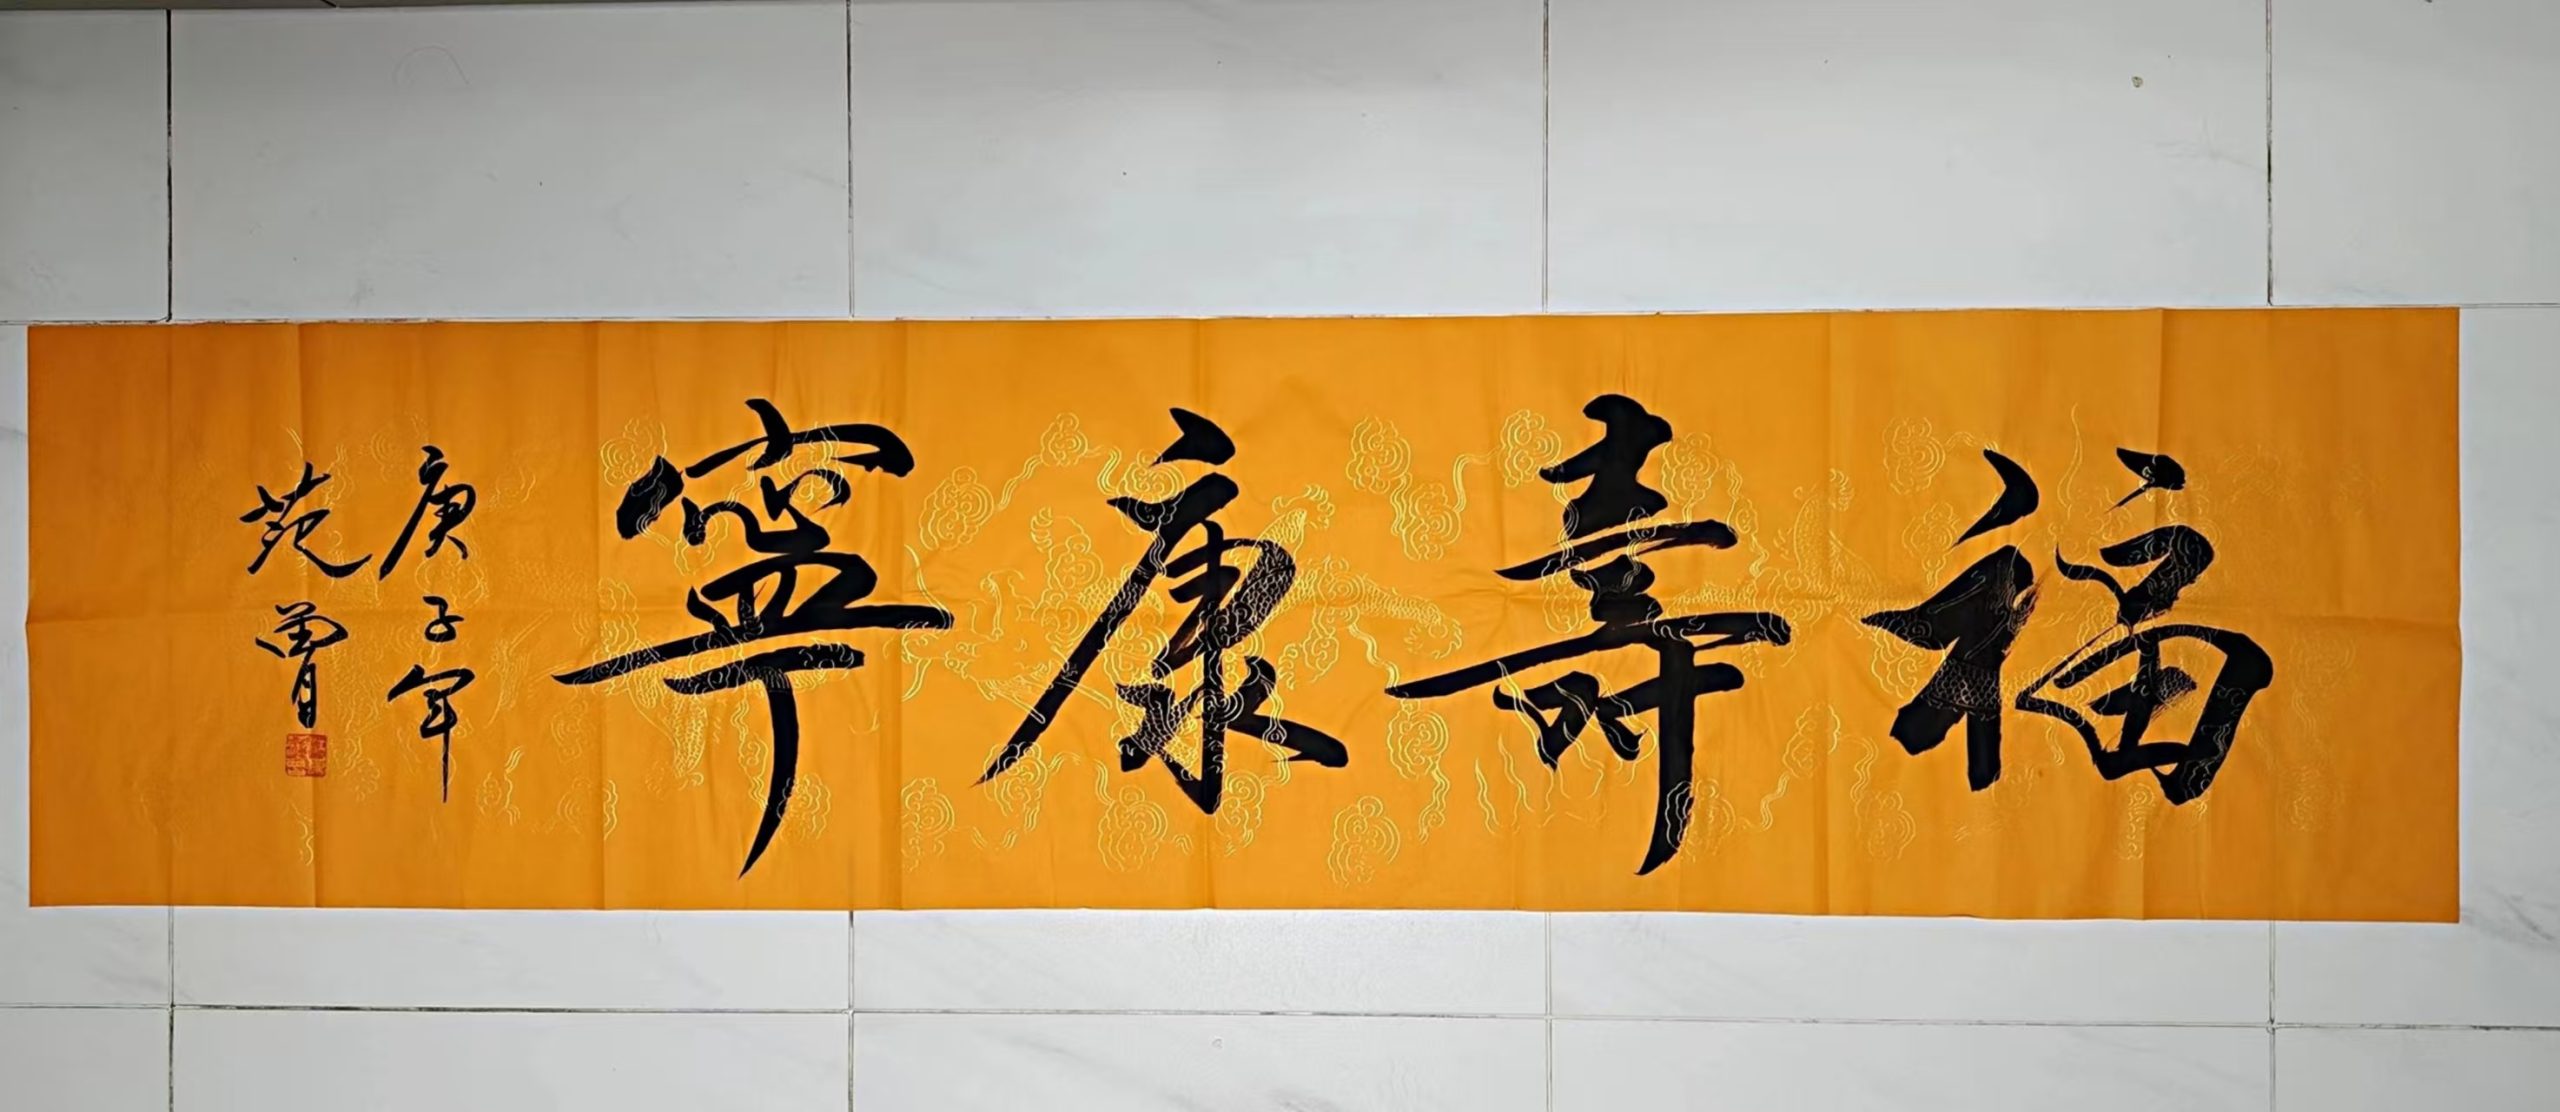 福壽康寧
庚子年
苑曾